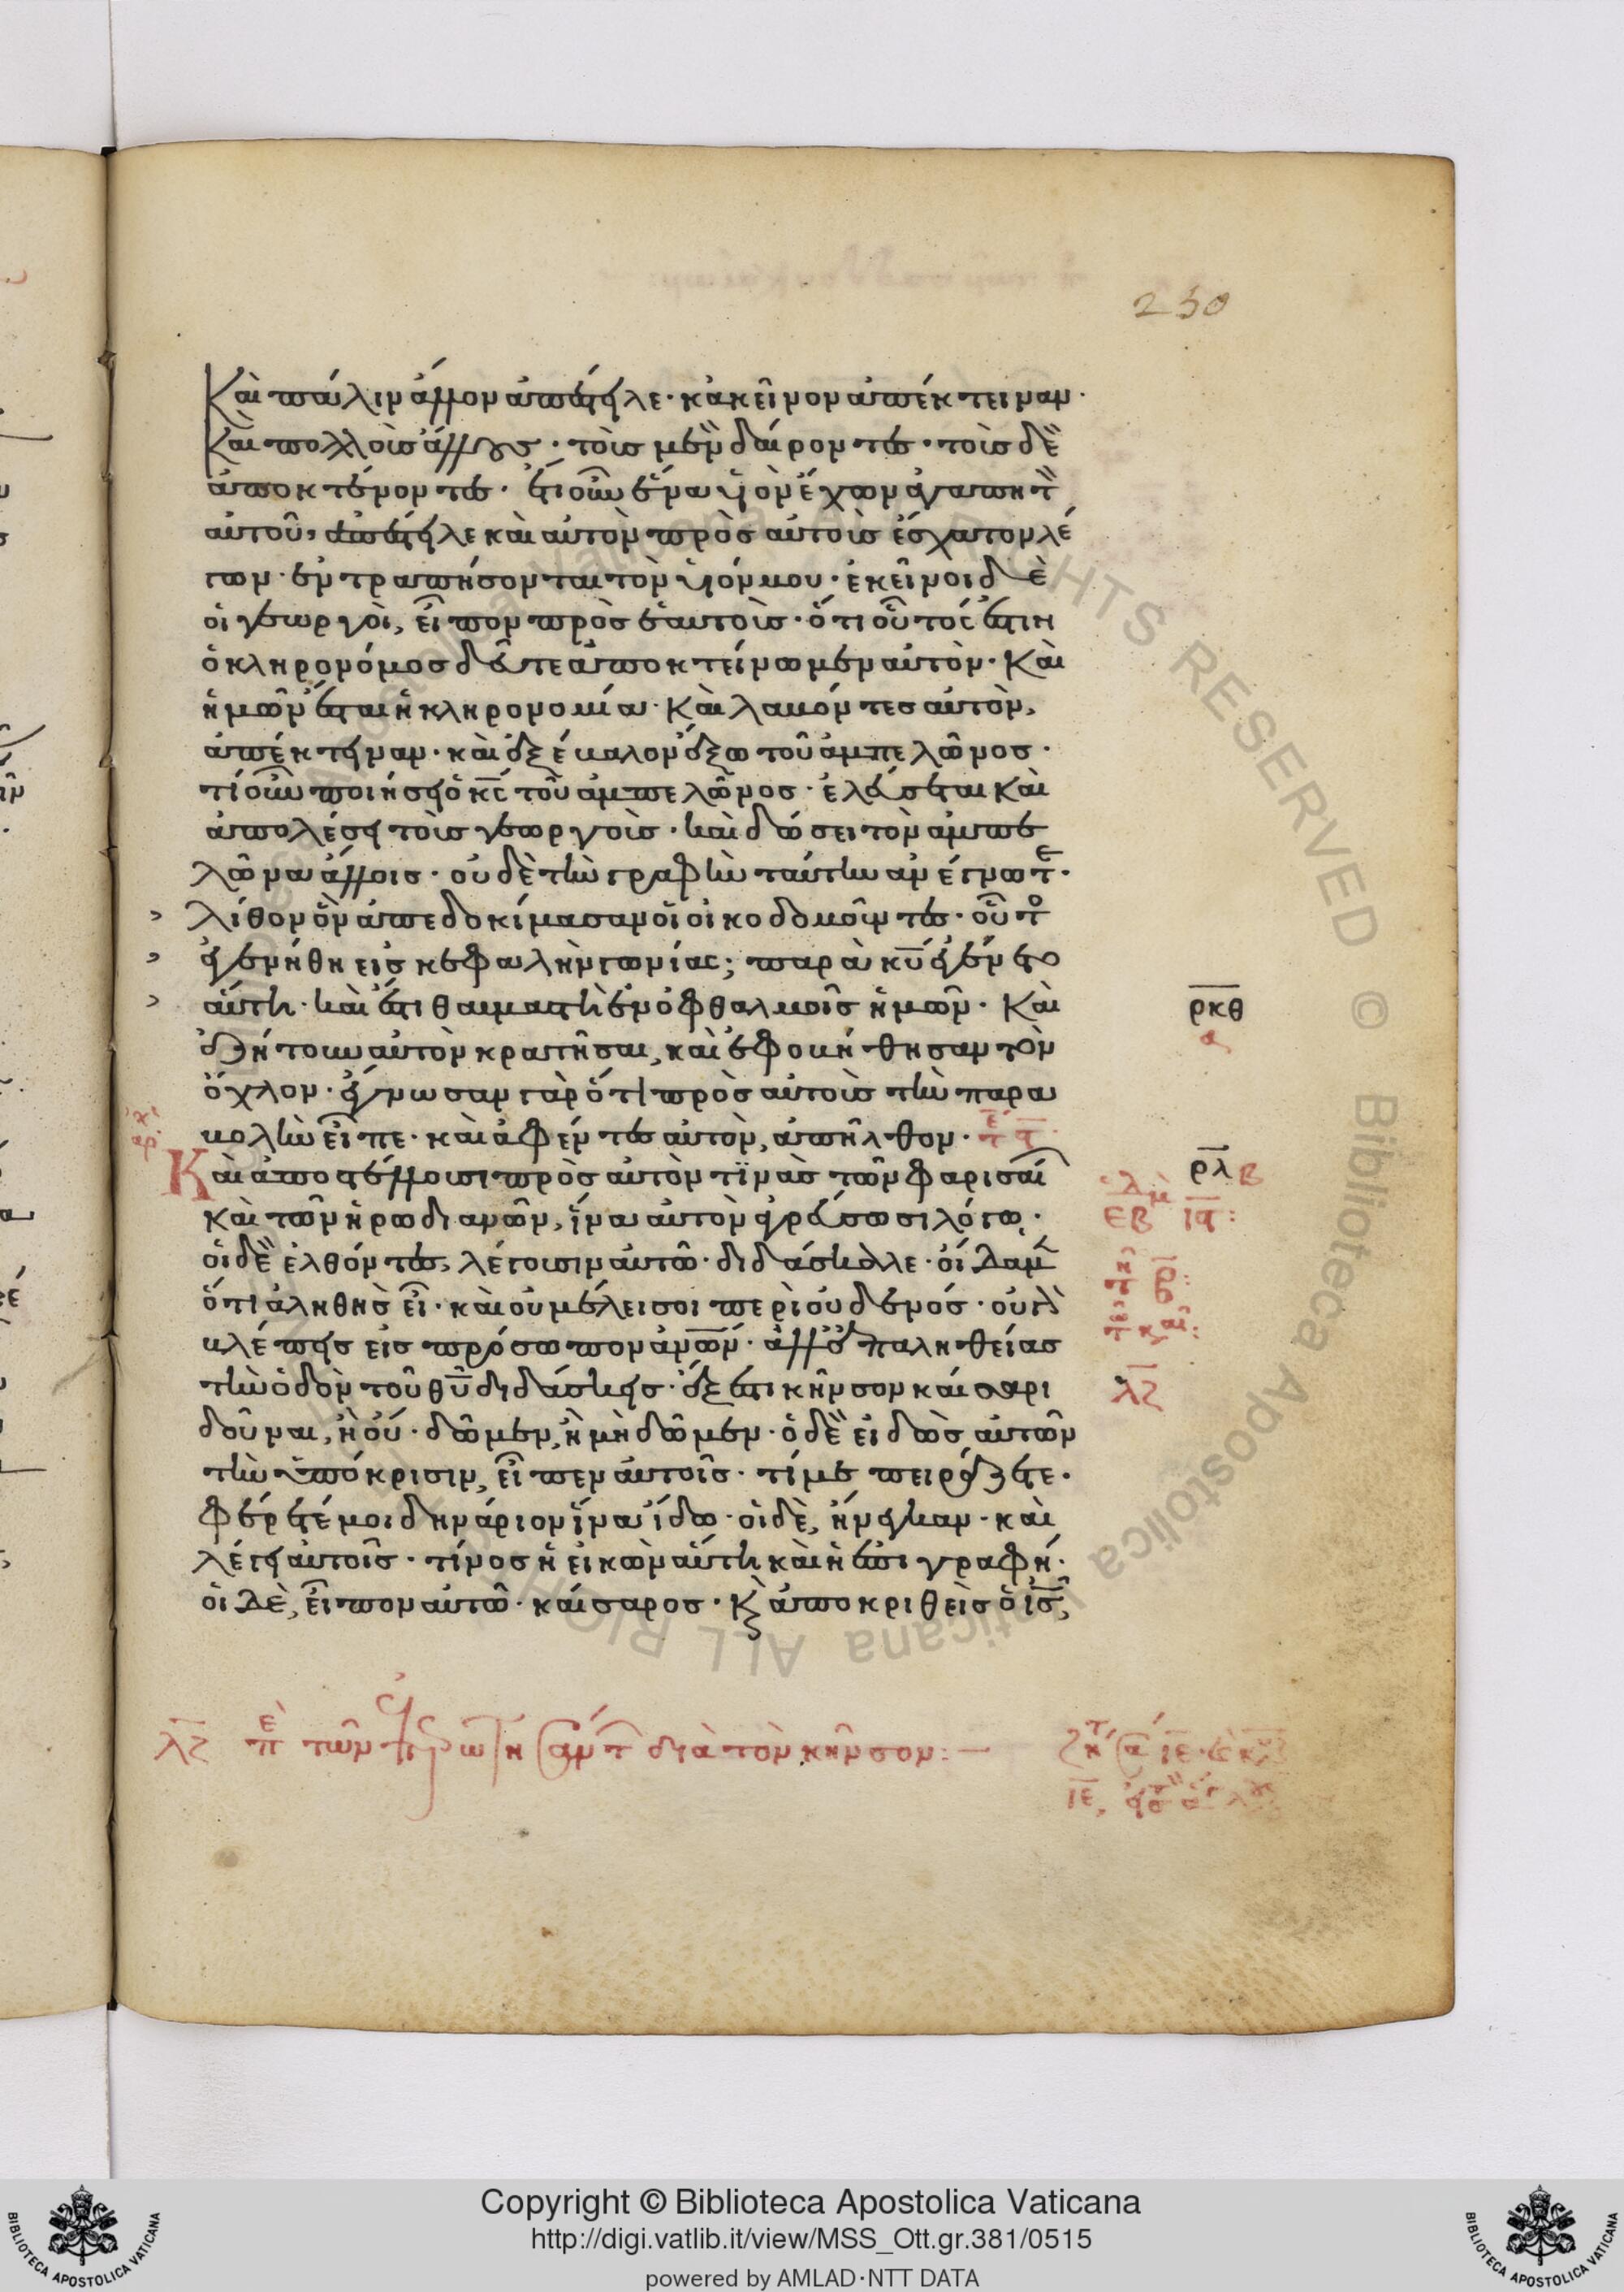 230
Καὶ πάλιν ἄλλον ἀπέστειλε· κἀκεῖνον ἀπέκτειναν·
Καὶ πολλοὺσ ἄλλουσ· τοὺσ μὲν δαίροντεσ· τοὺσ δὲ
ἀποκτένοντεσ· ἔτι οὖν ἕνα υἱὸν ἔχων ἀγαπητ
αὐτοῦ, ἀπέστειλε καὶ αὐτὸν πρὸσ αὐτοὺσ ἔσχατον λέ
γων· ἐντραπήσονται τὸν υἱόν μου· ἐκεῖνοι δὲ
οἱ γεωργοὶ, εἶπον πρὸσ ἑαυτοὺσ· ὅτι οὗτός ἐστιν
ὁ κληρονόμοσ δεῦτε ἀποκτείνωμεν αὐτὸν· Καὶ
ἡμῶν ἔσται ἡ κληρονομία· Καὶ λαβόντεσ αὐτὸν,
ἀπέκτειναν· καὶ ἐξέβαλον ἔξω τοῦ ἀμπελῶνοσ·
τί οὖν ποιήσει ὁ κσ τοῦ ἀμπελῶνοσ· ἐλεύσεται καὶ
ἀπολέσει τοὺσ γεωργοὺσ· καὶ δώσει τὸν ἀμπε
λῶνα ἄλλοισ· οὐδὲ τὴν γραφὴν ταύτην ἀνέγνωτε·
λίθον ὃν ἀπεδοκίμασαν οἱ οἰκοδομοῦντεσ· οὗτο
ἐγενήθη εἰσ κεφαλὴν γωνίασ; παρὰ κυ ἐγένετο
αὕτη· καὶ ἔστι θαυμαστὴ ἐν ὀφθαλμοῖσ ἡμῶν· Καὶ
ἐζήτουν αὐτὸν κρατῆσαι, καὶ ἐφοβήθησαν τὸν
ὄχλον· ἔγνωσαν γὰρ ὅτι πρὸσ αὐτοὺσ τὴν παρα
βολὴν εἶπε· καὶ ἀφέντεσ αὐτὸν, ἀπῆλθον·
Καὶ ἀποστέλλουσι πρὸσ αὐτὸν τινὰσ τῶν φαρισαί
καὶ τῶν ἡρωδιανῶν, ἵνα αὐτὸν ἀγρεύσωσι λόγω·
οἱ δὲ ἐλθόντεσ, λέγουσιν αὐτῶ· διδάσκαλε· οἴδαμ
ὅτι ἀληθὴσ εἶ· καὶ οὐ μέλει σοι περὶ οὐδενόσ· οὐ γὰρ
βλέπεισ εἰσ πρόσωπον ἀνων· ἀλλ' ἐπ' αληθείασ
τὴν ὁδὸν τοῦ θυ διδάσκεισ· ἔξεστι κῆνσον καίσαρι
δοῦναι, ἢ οὔ· δῶμεν, ἢ μὴ δῶμεν· ὁ δὲ εἰδὼσ αὐτῶν
τὴν ὑπόκρισιν, εἶπεν αὐτοῖσ· τί με πειράζετε·
φέρετέ μοι δηνάριον ἵνα ἴδω· οἱ δὲ, ἤνεγκαν· καὶ
λέγει αὐτοῖσ· τίνοσ ἡ εἰκὼν αὕτη καὶ ἡ ἐπιγραφή·
οἱ δὲ, εἶπον αὐτῶ· καίσαροσ· Κ ἀποκριθεὶσ ὁ ισ,
ρκθ
α
ρλ β
λζ
λζ πε τῶν διὰ τὸν κῆνσον:
Copyright © Biblioteca Apostolica Vaticana
http://digi.vatlib.it/view/MSS_Ott.gr.381/0515
powered by AMLAD·NTT DATA